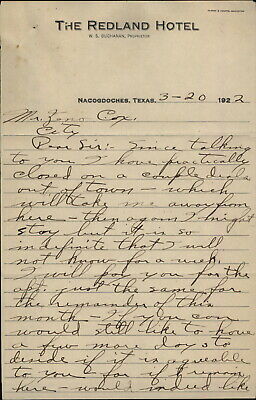 THE REDLAND HOTEL
W. S. BUCHANAN, PROPRIETOR
NACOGDOCHES, TEXAS, 3-20 1922
Mr. Zeno Cox,
City
Dear Sir:- Since talking
to you I have practically
closed on a couple deals
out of town - which
will take me away from
here - then again I might
stay but it is so
indefinite that I will
not know for a week.
I will pay you for the
apt. just the same for
the remainder of this
month - If you can
would still like to have
a few more days to
decide if it is agreeable
to you - for if I remain
here - would indeed like